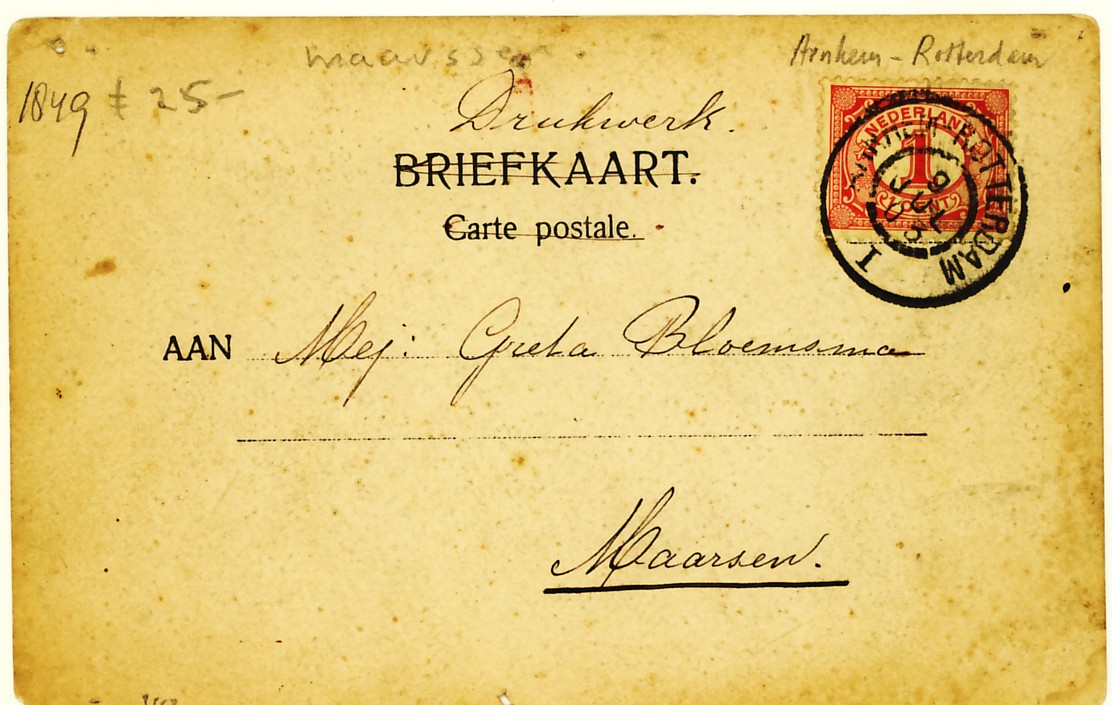 Arnhem - Rotterdam
maarssen.
1849 ± 25-
Drukwerk.
BRIEFKAART.
Carte postale.
NEDERLAND
1
CENT
ARNHEM-ROTTERDAM
I
AAN Mej: Greta Bloemsma
Maarsen.